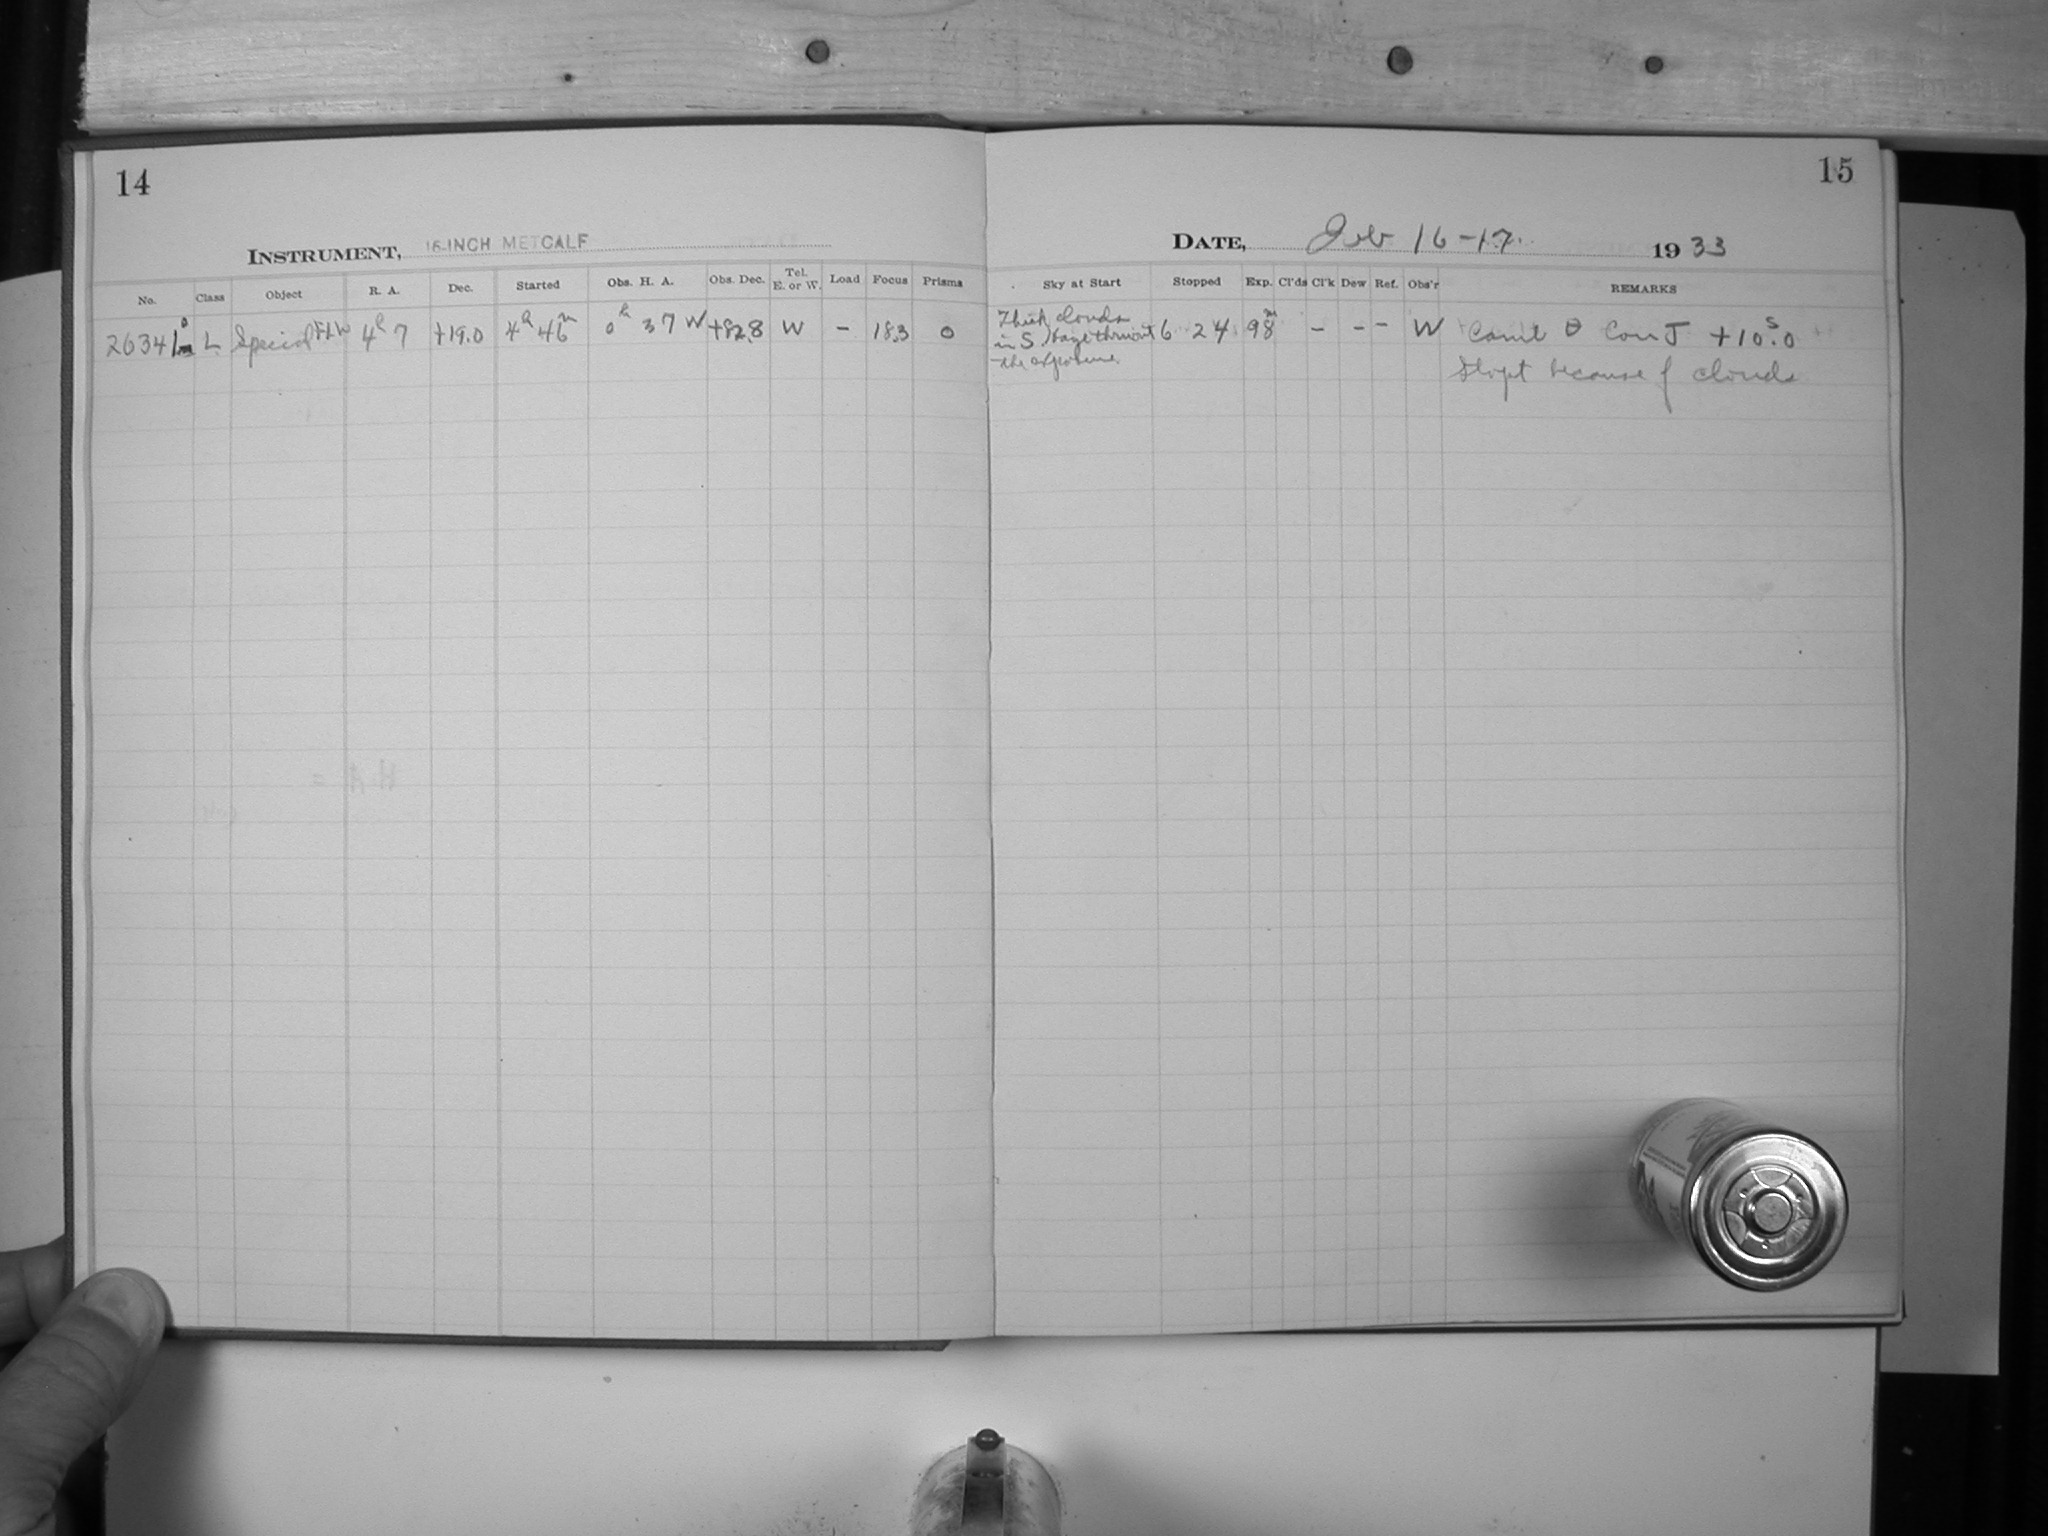 14
INSTRUMENT, 16-INCH METCALF
No. Class Object R. A. Dec. Started Obs. H. A. Obs. Dec. Tel. E. or W. Load Focus Prisms
L Special 4h 7 +19.0 4h 46m 0h 37 W W - 18.3 0
15
DATE, Feb 16-17. 1933
Sky at Start Stopped Exp. Cl'ds Cl'k Dew Ref. Obs'r REMARKS
Thick clouds
in S. Haze thruout 6 24 98m - - - W Con J +10s.0
the exposure.
Stopt because of clouds